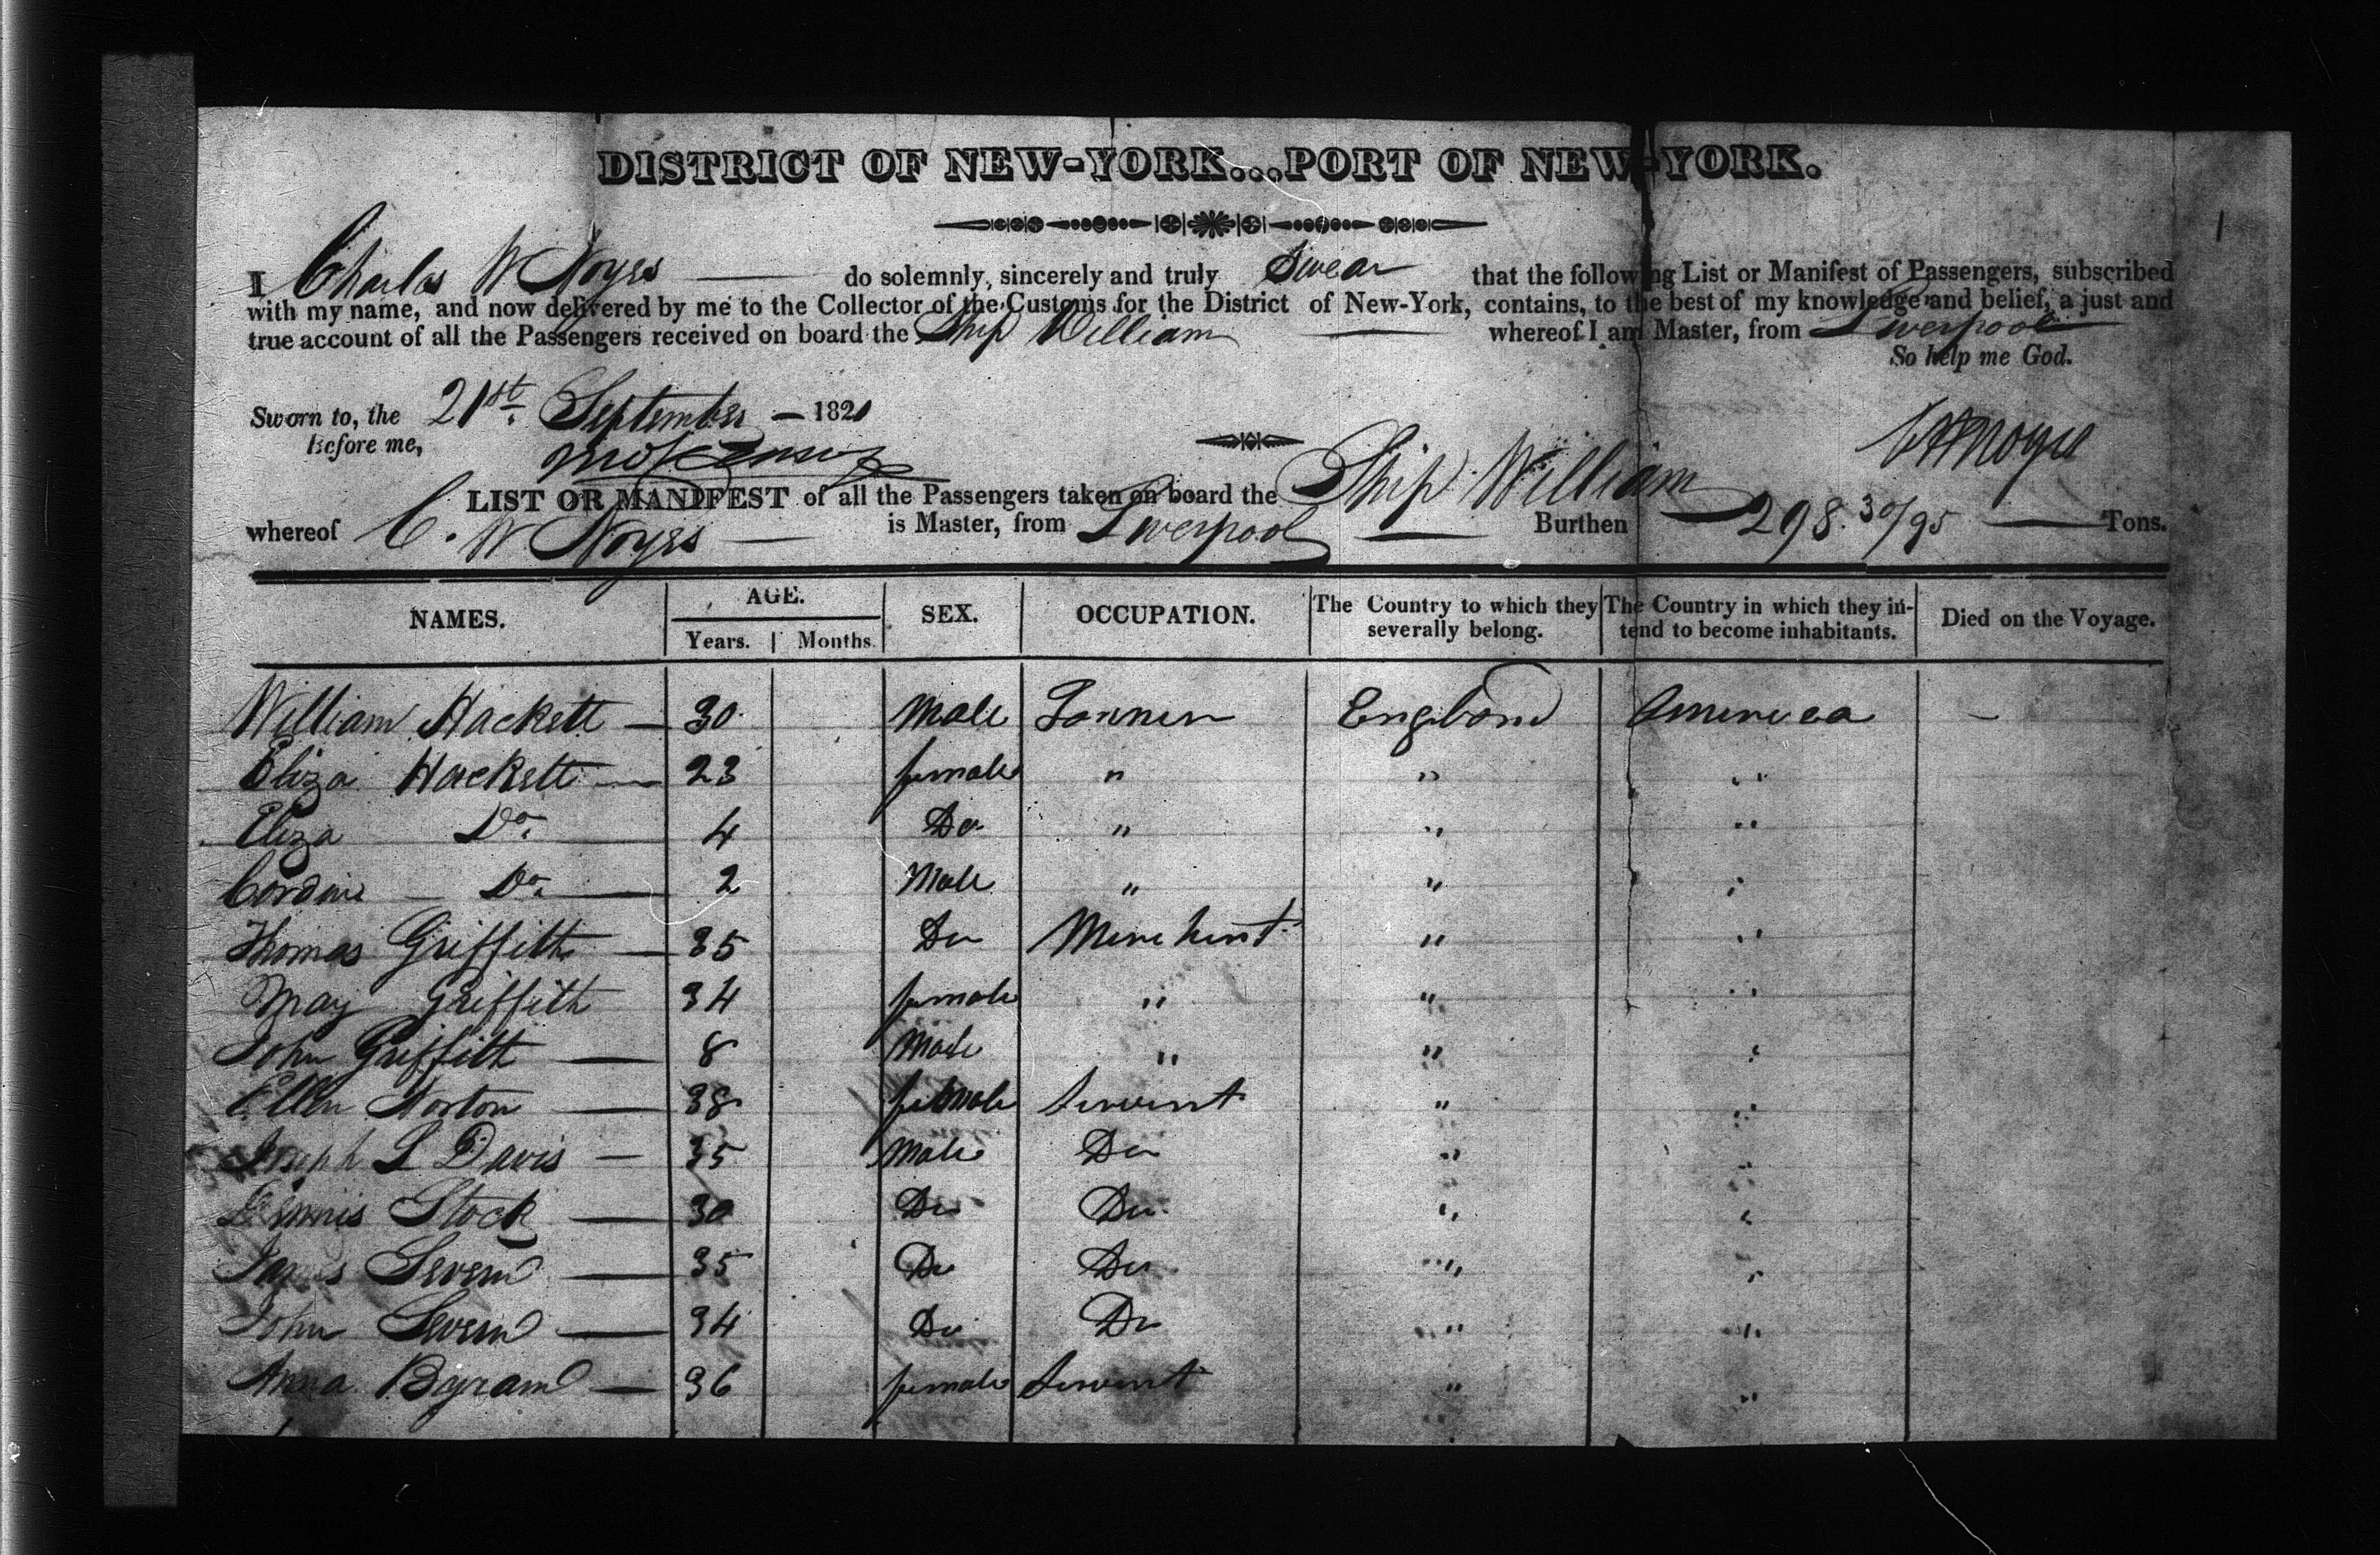 DISTRICT OF NEW-YORK...PORT OF NEW-YORK.
1
I Charles W Noyes do solemnly, sincerely and truly Swear that the following List or Manifest of Passengers, subscribed
with my name, and now delivered by me to the Collector of the Customs for the District of New-York, contains, to the best of my knowledge and belief, a just and
true account of all the Passengers received on board the Ship William whereof I am Master, from Liverpool
So help me God.
Sworn to, the 21st September 1821
Before me,
CW Noyes
LIST OR MANIFEST of all the Passengers taken on board the Ship William
whereof C. W Noyes is Master, from Liverpool Burthen 298. 30/95 Tons.
NAMES. AGE. SEX. OCCUPATION. The Country to which they severally belong. The Country in which they intend to become inhabitants. Died on the Voyage.
Years. Months.
William Hackett — 30 Male Tanner England America —
Eliza Hackett — 23 female " " "
Eliza Do. 4 Do " " "
Do. 2 Male " " "
Thomas Griffith — 35 Do Merchant " "
May Griffith 34 female " " "
John Griffith — 8 Male " " "
Ellen Norton — 38 female Servent " "
Joseph L Davis — 35 Male Do " "
Dennis Stock — 30 Do Do " "
James Severn — 35 Do Do " "
John Severn — 34 Do Do " "
Anna Byram — 36 female Servent " "